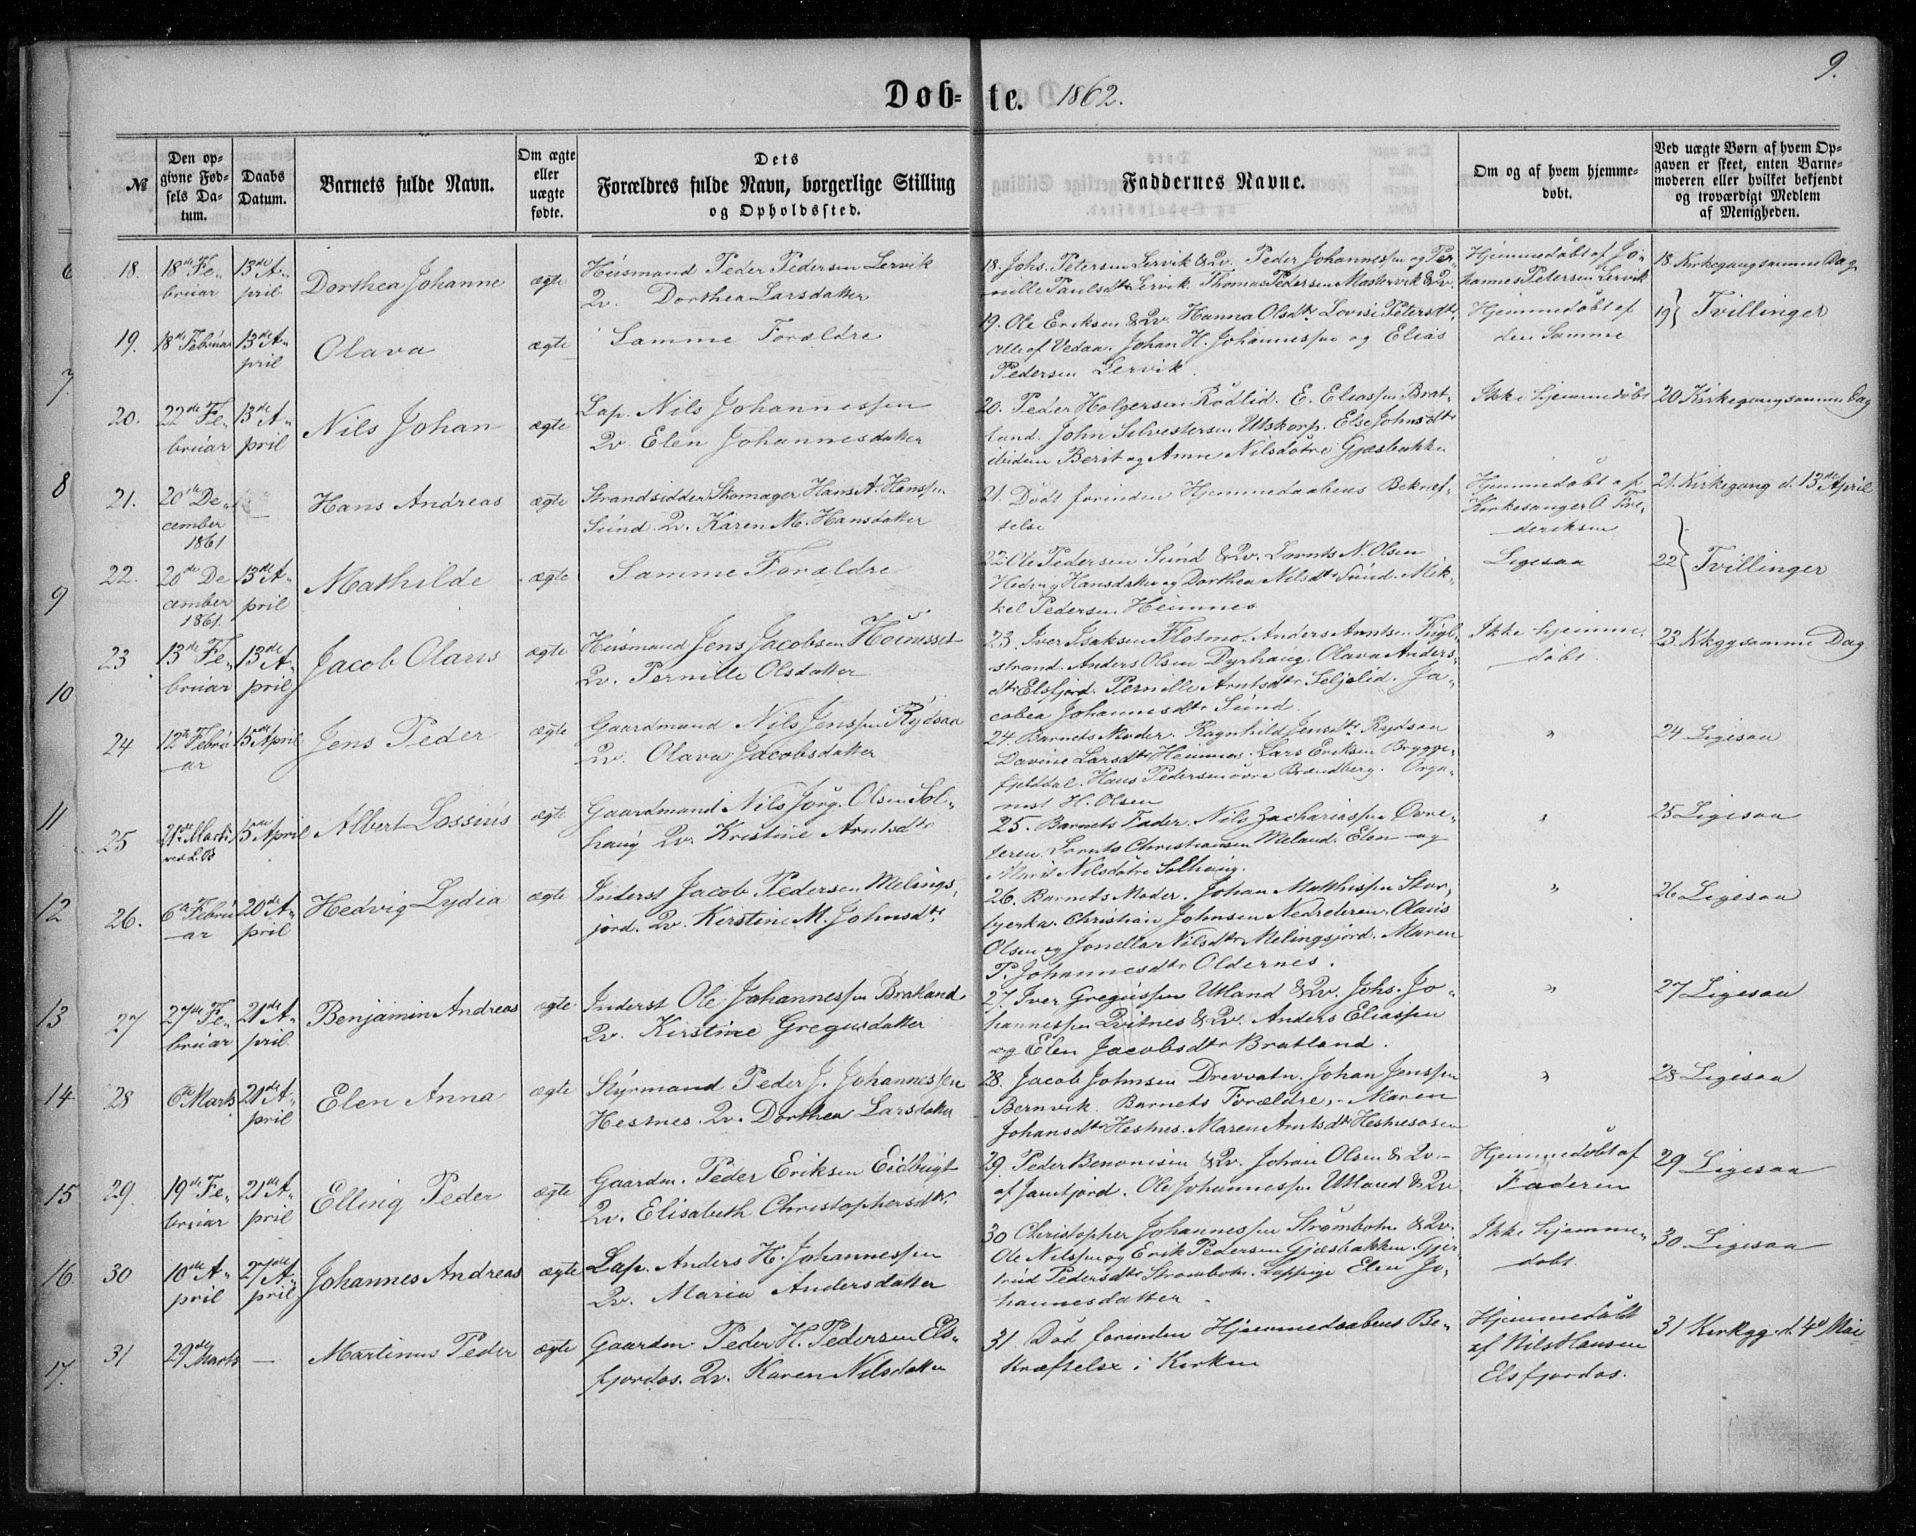 9.
Døb- te. 1862.
№
Den op-
givne Fød-
sels Da-
tum.
Daabs
Datum.
Barnets fulde Navn.
Om ægte
eller
uægte
fødte.
Dets
Forældres fulde Navn, borgerlige Stilling
og Opholdssted.
Faddernes Navne.
Om og af hvem hjemme-
døbt.
Ved uægte Børn af hvem Op-
gaven er skeet, enten Barne-
moderen eller hvilket bekjendt
og troværdigt Medlem
af Menigheden.
6
7
8
9
10
11
12
13
14
15
16
17.
18.
18de Fe-
bruar
13de A-
pril
Dorthea Johanne
ægte
Huusmand Peder Pedersen Lervik
Qv. Dorthea Larsdatter
18. Johs. Petersen Lervik & Qv. Peder Johannessen og Per-
nille Paulsdtr Lervik Thomas Pedersen Mastervik & Qv.
Hjemmedøbt af Jo-
hannes Petersen Lervik
18 Kirkegang samme Dag
19.
18de Februar
13de A-
pril
Olava
ægte
Samme Forældre
19. Ole Eriksen & Qv. Hanna Olsdtr Lovise Petersdtr
alle af Vedaa. Johan H. Johannessen og Elias
Pedersen Lervik.
Hjemmedøbt af
den Samme
19} Tvillinger
20.
22de Fe-
bruar
13de A-
pril
Nils Johan
ægte
Lap. Nils Johannessen
Qv. Elen Johannesdatter
20. Peder Holgersen Rødlid. E. Eliassen Brat-
land. John Silvestersen Utskorp. Else Johnsdtr
ibidem Berit og Anne Nilsdøtre Gjæsbakke
Ikke hjemmedøbt
20 Kirkegang samme Dag
21.
20de De-
cember
1861
—
Hans Andreas
ægte
Strandsidder Skomager Hans A. Hanssen
Sund Qv. Karen M. Hansdatter
21. Død forinden Hjemmedaabens Bekræf-
telse
Hjemmedøbt af
Kirkesanger O Fre-
deriksen
21. Kirkegang d. 13de April
22.
20de De
cember
1861.
13de A-
pril
Mathilde
ægte
Samme Forældre
22. Ole Pedersen Sund & Qv. Lornts N. Olsen
Hedvig Hansdatter og Dorthea Nilsdtr Sund. Mik-
kel Pedersen Hemnes
Ligesaa
22} Tvillinger
23
13de Fe-
bruar
13de A-
pril
Jacob Olaus
ægte
Huusmand Jens Jacobsen
Qv. Pernille Olsdatter
23. Iver Isaksen Flotmo. Anders Arntsen Fugl-
strand. Anders Olsen Dyrhaug. Olava Anders-
dtr Elsfjord. Pernille Arntsdtr Seljelid. Ja-
cobea Johannesdtr Sund.
Ikke hjemme-
døbt.
23. Kkgg samme Dag
24
12te Febru-
ar
13de April
Jens Peder
ægte
Gaardmand Nils Jenssen Rydsaa
Qv. Olava Jacobsdatter
24. Barnets Moder. Ragnhild Jensdtr Rydsaa
Davine Larsdtr Hemnes. Lars Eriksen Brygge-
fjelddal. Hans Pedersen øvre Brændberg. Orga-
nist H. Olsen
"
24 Ligesaa
25
21de Marts
13de April
Albert Lossius
ægte
Gaardmand Nils Jørg. Olsen Sol-
haug Qv. Kristine Arntsdtr
25. Barnets Fader. Nils Zachariassen Øvre-
leren. Lornts Christiansen Meland. Elen og
Marit Nilsdøtre Solhaug.
"
25 Ligesaa
26.
6te Febru-
ar
20de A-
pril
Hedvig Lydia
ægte
Inderst Jacob Pedersen Melings-
jord. Qv. Kirstine M. Johnsdtr
26. Barnets Moder. Johan Matthissen Skar-
Christian Johnsen Nedreleren. Olaus
Olsen og Jonella Nilsdtr Melingsjord. Maren
P. Johannesdtr Oldernes.
"
26 Ligesaa
27
27de Fe-
bruar
21de A-
pril
Benjamin Andreas
ægte
Inderst Ole Johannessen Bratland
Qv. Kirstine Gregusdatter
27 Iver Gregussen Utland & Qv. Johs. Jo-
hannessen Qvitnes & Qv. Anders Eliassen
og Elen Jacobsdtr Bratland.
"
27 Ligesaa
28
6te Marts
21de A-
pril
Elen Anna
ægte
Styrmand Peder J. Johannessen
Hestnes. Qv. Dorthea Larsdatter
28. Jacob Johnsen Drevvatn. Johan Jenssen
Bernvik. Barnets Forældre, Maren
Johansdtr Hestnes. Maren Arntsdtr Hestnesosen
"
28 Ligesaa
29.
19de Fe-
bruar
21de A-
pril
Elling Peder
ægte
Gaardm. Peder Eriksen Eidbugt
Qv. Elisabeth Christophersdtr.
29 Peder Benonisen & Qv. Johan Olsen & Qv.
af Jamtjord. Ole Johannessen Utland & Qv
Hjemmedøbt af
Faderen
29 Ligesaa
30
10de A-
pril
27de A-
pril
Johannes Andreas
ægte
Lap. Anders H. Johannessen
Qv. Maria Andersdatter
30 Christopher Johannessen Strømbotn & Qv.
Ole Nilssen og Erik Pedersen Gjæsbakken. Gjer-
trud Pedersdtr Strømbotn. Lappige Elen Jo-
hannesdatter
Ikke hjemme-
døbt.
30 Ligesaa
31
29de
Marts
—
Martinus Peder
ægte
Gaardm Peder H. Pedersen Els-
fjordos. Qv. Karen Nilsdatter
31 Død forinden Hjemmedaabens Be-
kræftelse i Kirken
Hjemmedøbt
af Nils Hansen
Elsfjordos.
31 Kirkgg d. 4de Mai